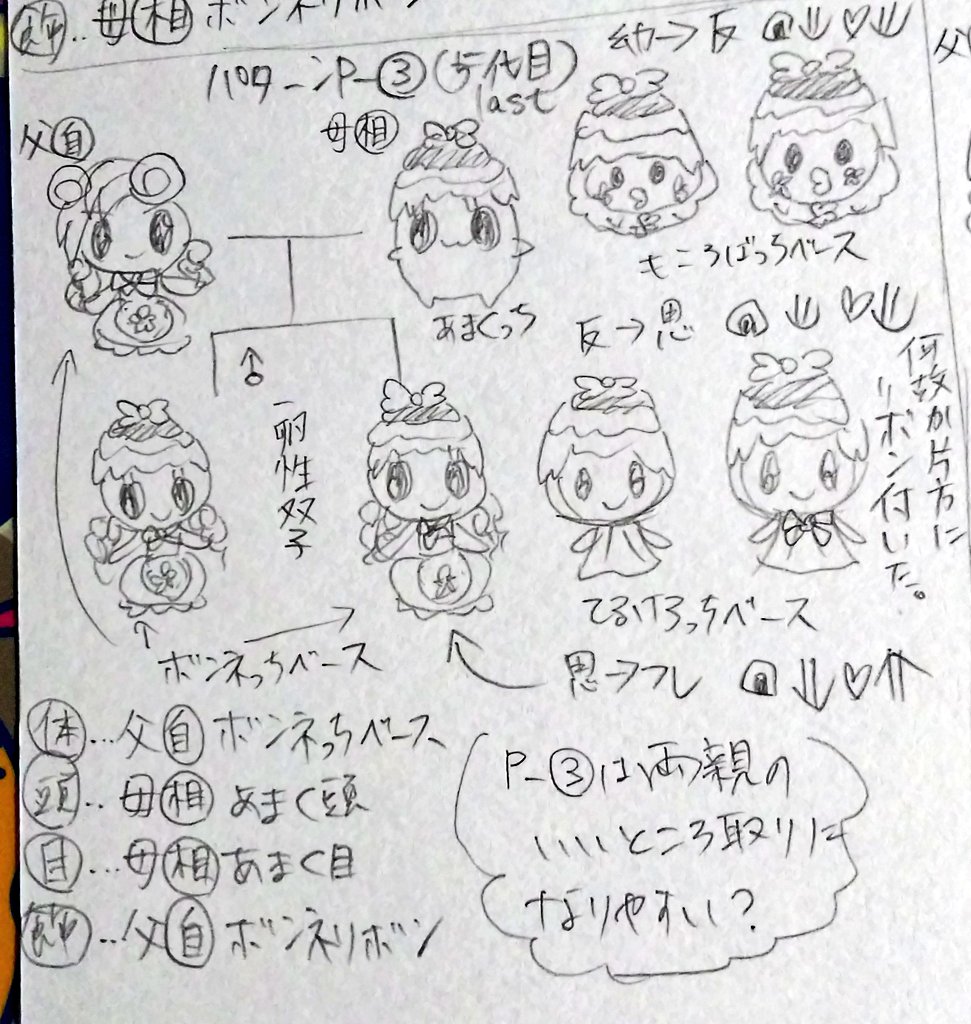 飾‥母相ボンネリボン
パターンP-③(五代目)
last
父自
母相
幼→反
もころばっちベース
あまくっち
反→思
何故か片方に
リボン付いた。
一卵性双子
てるけろっちベース
ボンネっちベース
思→フレ
体…父自ボンネっちベース
頭‥母相あまく頭
目…母相あまく目
飾…父自ボンネリボン
P-③は両親の
いいところ取りに
なりやすい?
父